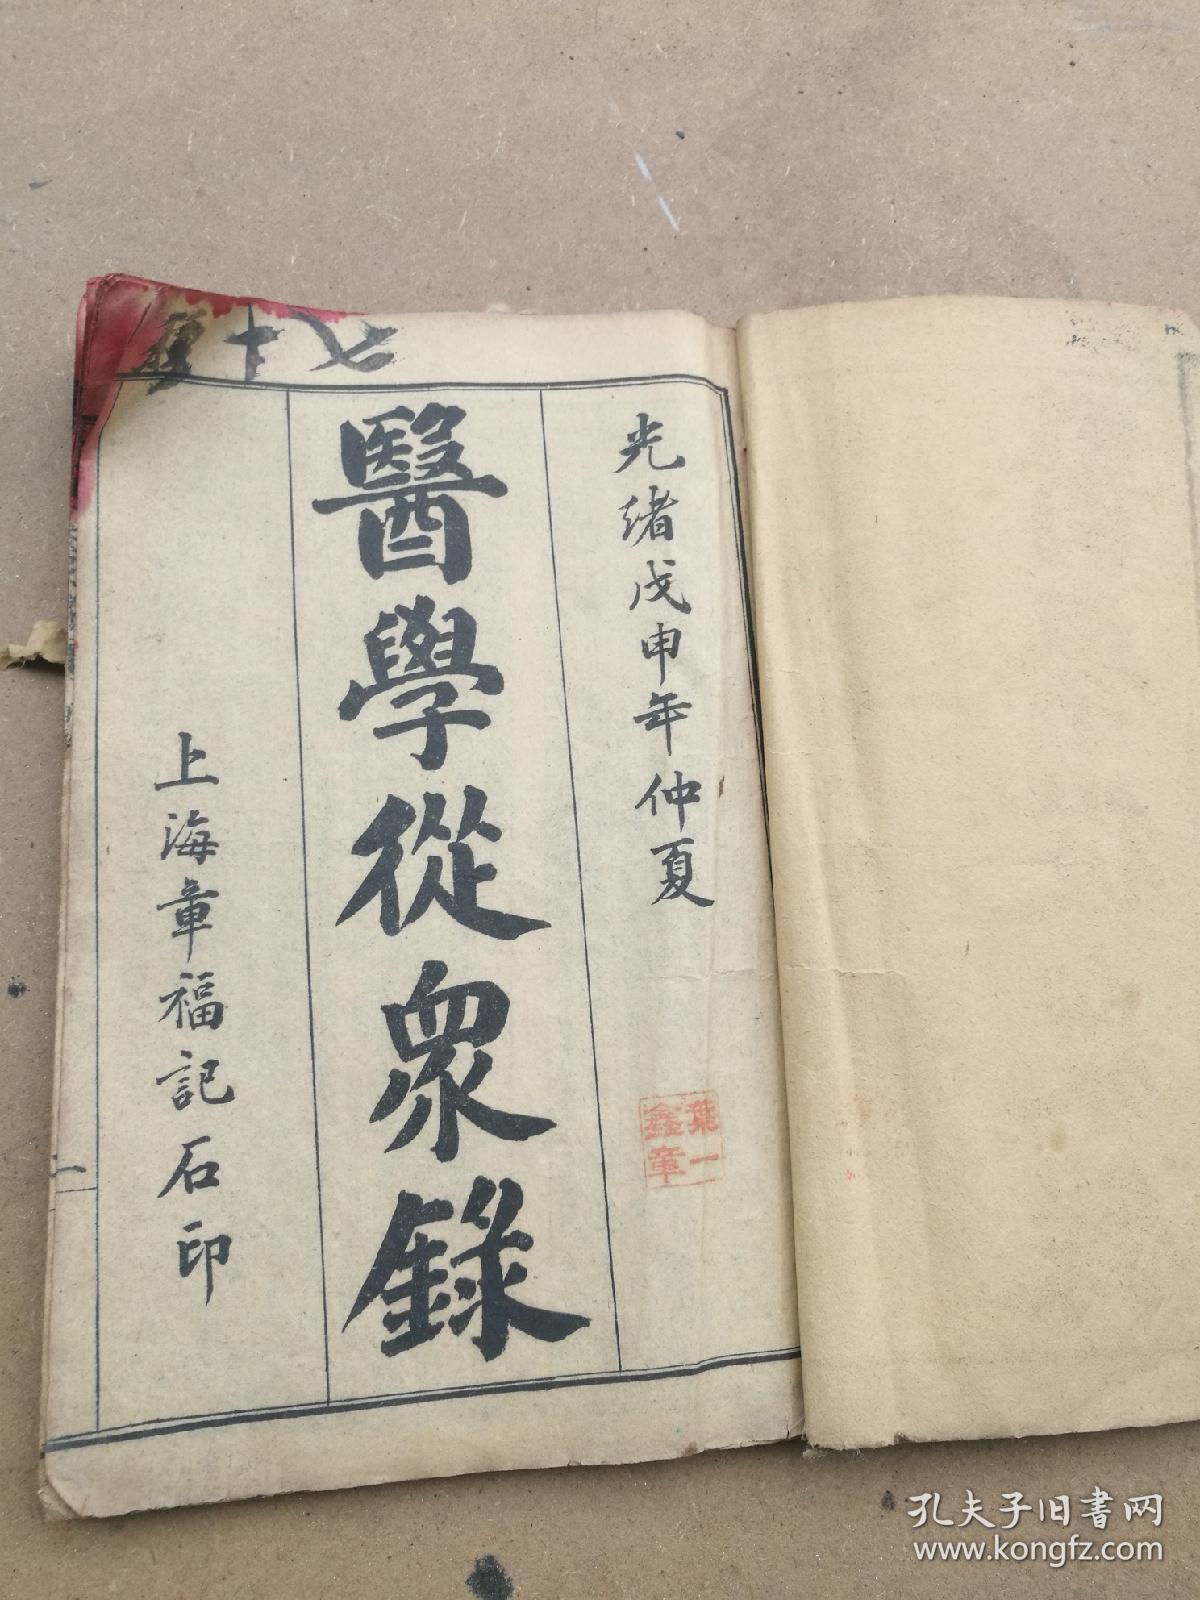 光緒戊申年仲夏
醫學從眾錄
上海章福記石印
葉一
鑫章
七十
孔夫子旧书网
www.kongfz.com